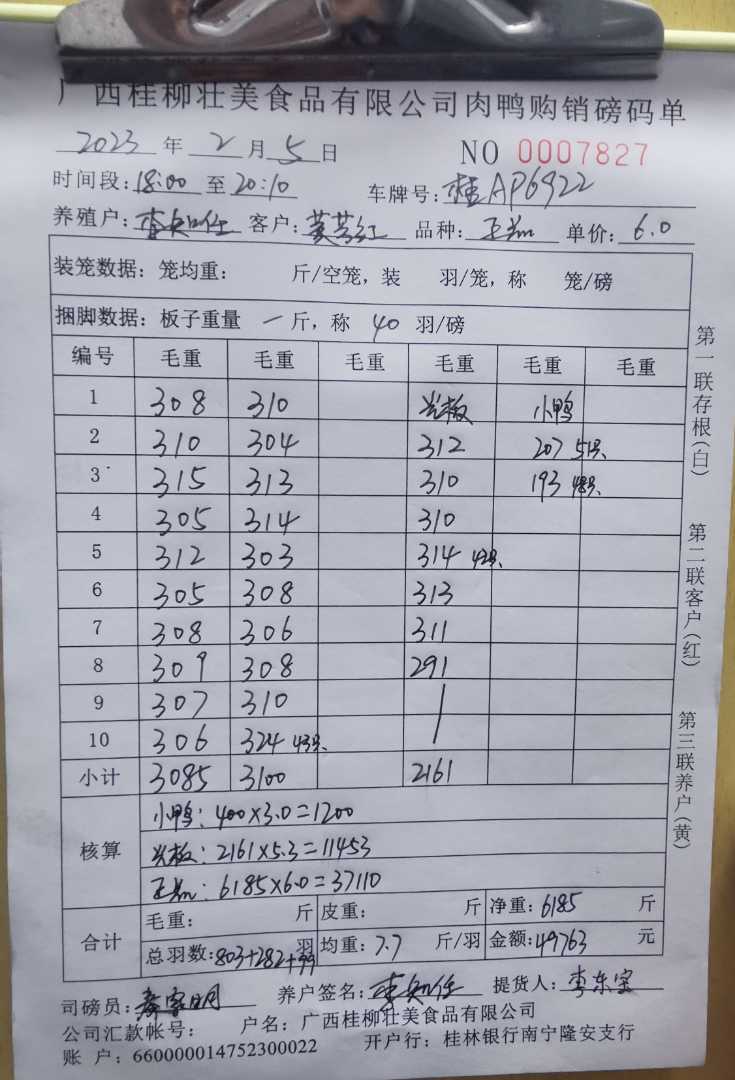 广西桂柳壮美食品有限公司肉鸭购销磅码单
2023 年 2 月 5 日 NO 0007827
时间段:18:00 至 20:10 车牌号:桂AP6922
养殖户:李知任 客户:黄芳红 品种: 单价:6.0
装笼数据:笼均重: 斤/空笼,装 羽/笼,称 笼/磅
捆脚数据:板子重量 一 斤,称 40 羽/磅
编号 毛重 毛重 毛重 毛重 毛重 毛重
1 308 310 光板 小鸭
2 310 304 312 207 51只
3 315 313 310 193 48只
4 305 314 310
5 312 303 314 42只
6 305 308 313
7 308 306 311
8 309 308 291
9 307 310
10 306 324 43只
小计 3085 3100 2161
核算
小鸭:400×3.0=1200
光板:2161×5.3=11453
6185×6.0=37110
合计
毛重: 斤 皮重: 斤 净重:6185 斤
总羽数:803+282+99 羽 均重:7.7 斤/羽 金额:49763 元
司磅员: 养户签名:李知任 提货人:李东宝
公司汇款帐号: 户名:广西桂柳壮美食品有限公司
账 户:660000014752300022 开户行:桂林银行南宁隆安支行
第一联存根(白)
第二联客户(红)
第三联养户(黄)